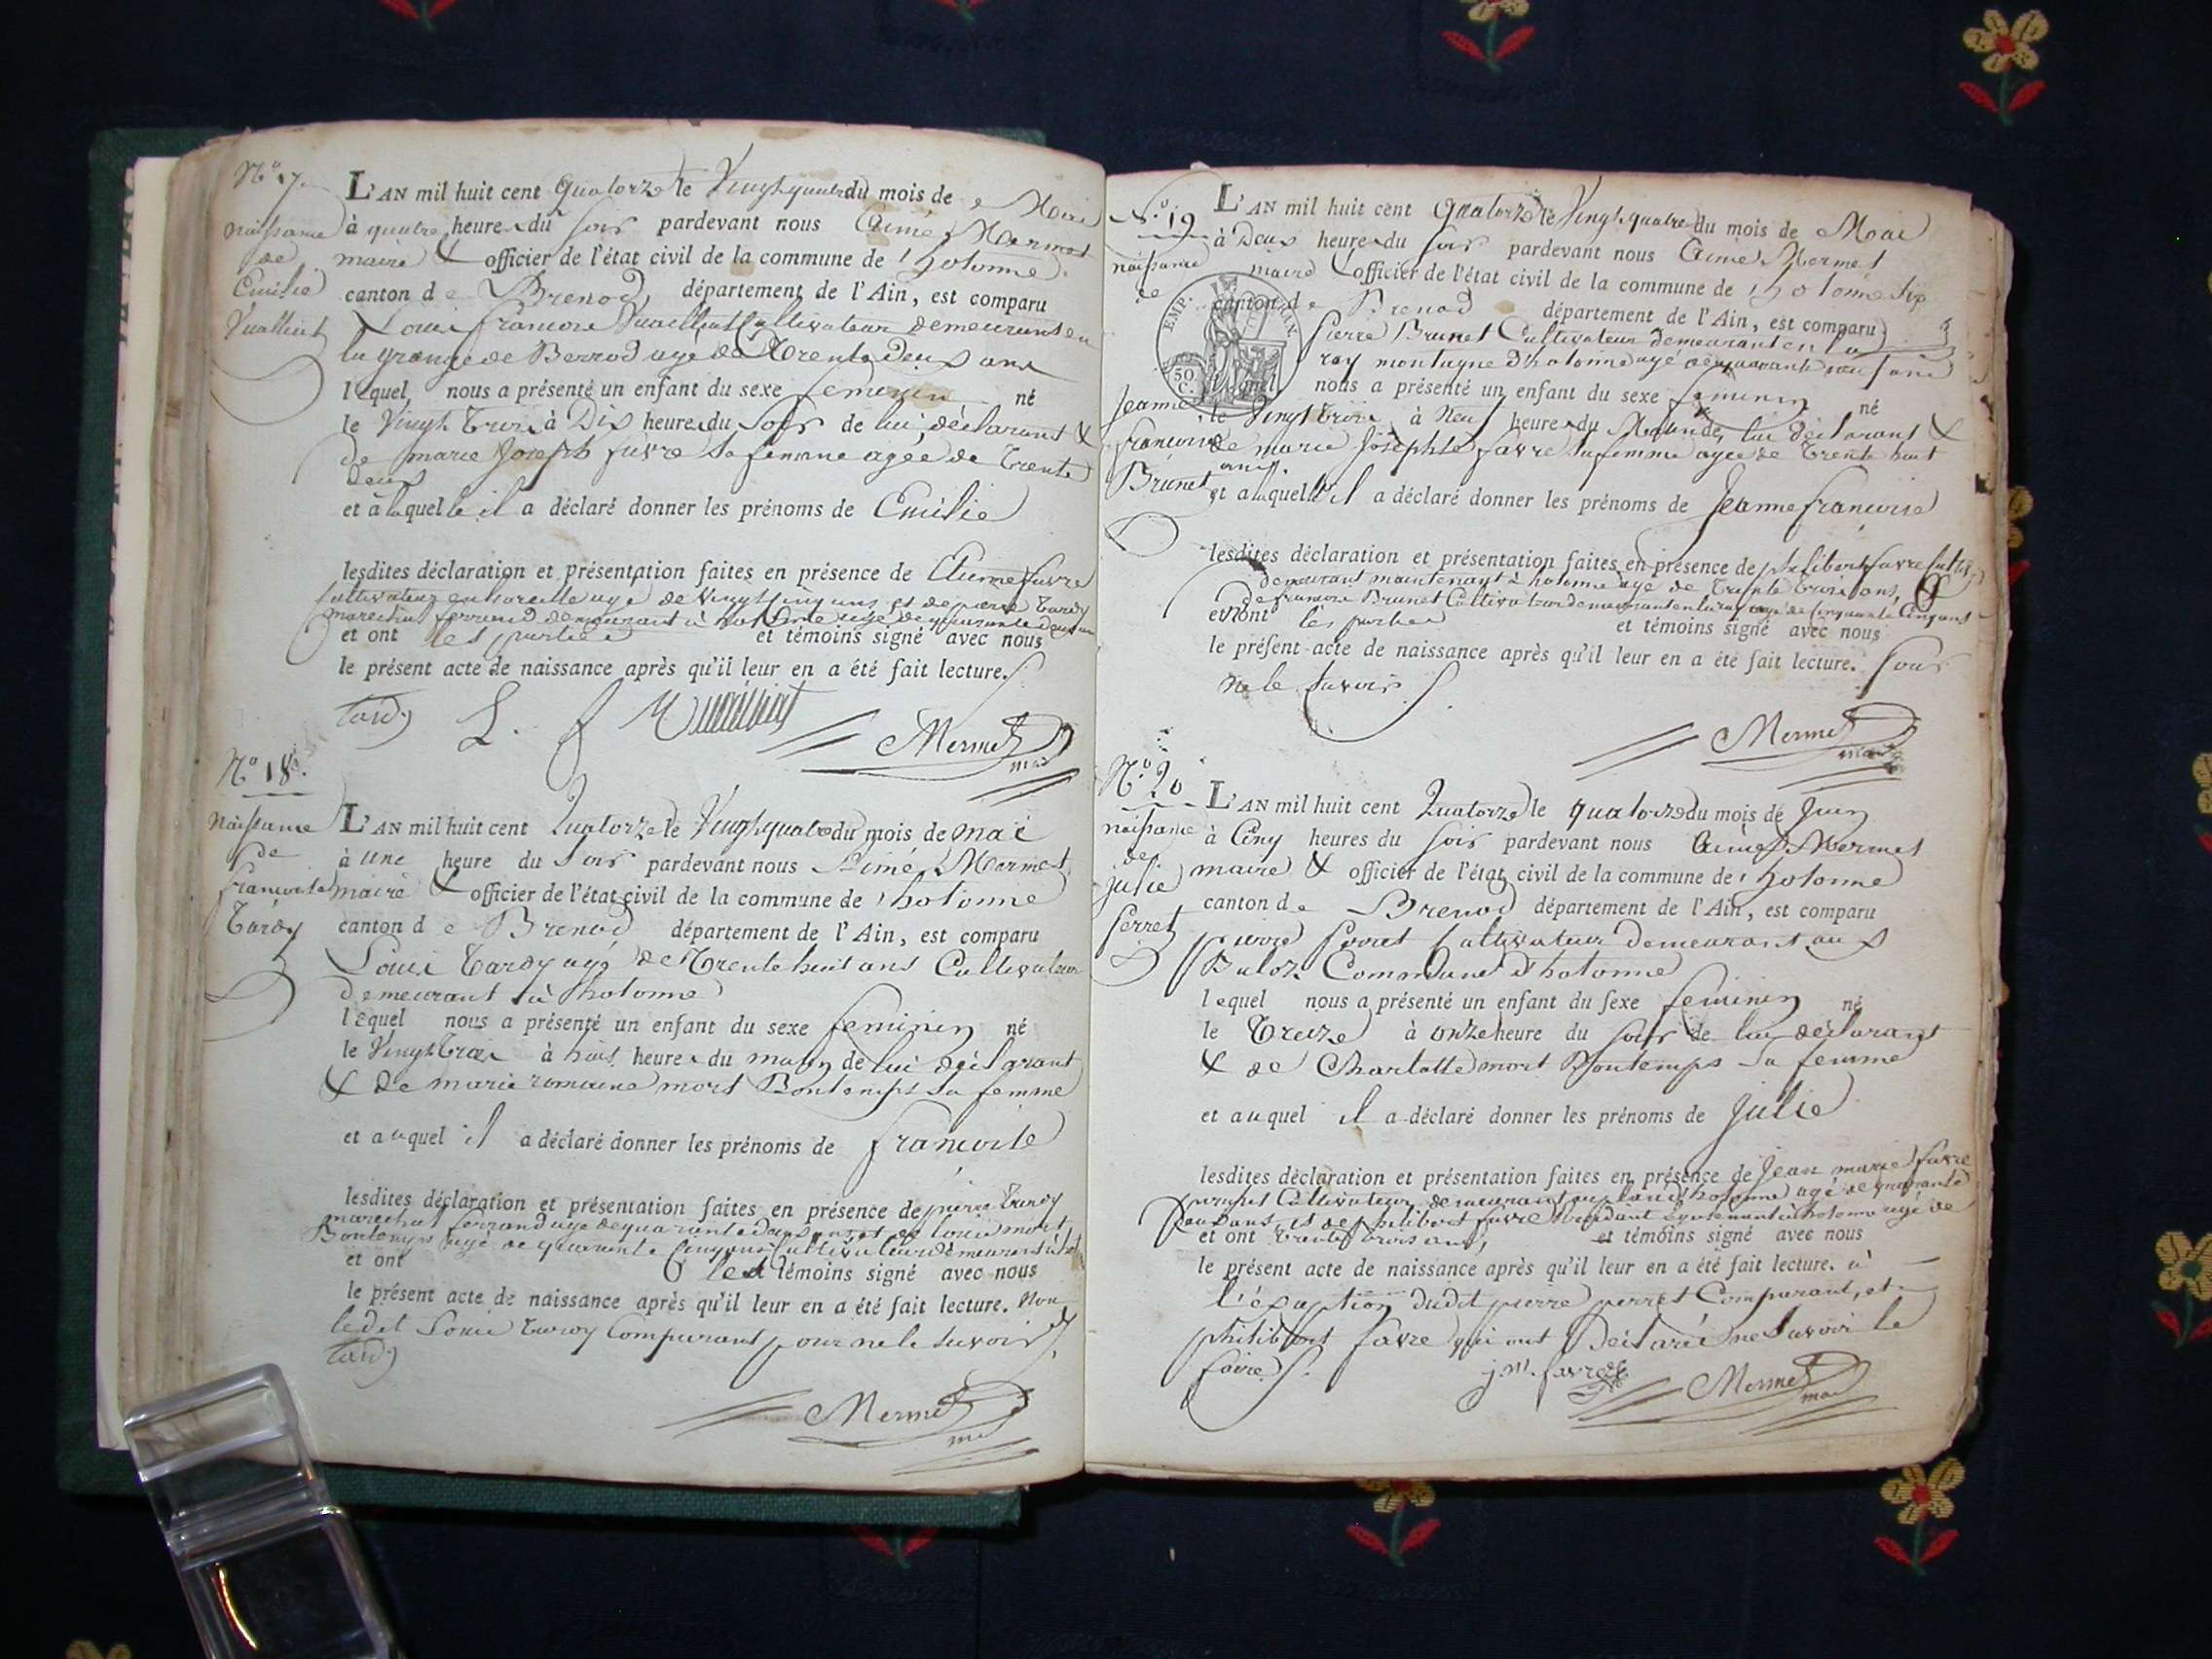 N.o 17.
naissance
de
Emilie
Vuailliat
L'AN mil huit cent quatorze le Vingt quatre du mois de Mai
à quatre heures du soir pardevant nous Aimé Mermet
maire & officier de l'état civil de la commune de hotonne
canton de Brenod, département de l'Ain, est comparu
Louis francois Vuailliat Cultivateur demeurant en
la grange de Berrod agé de Trente deux ans
lequel nous a présenté un enfant du sexe feminin né
le Vingt Trois à Dix heures du Soir de lui déclarant &
de marie Joseph favre sa femme agée de Trente
deux
et à laquelle il a déclaré donner les prénoms de Emilie
lesdites déclaration et présentation faites en présence de favre
Cultivateur agé de Vingt cinq ans et de pierre Tardy
marechal ferrand demeurant à hotonne agé de quarante deux ans
et ont les parties et témoins signé avec nous
le présent acte de naissance après qu'il leur en a été fait lecture.
Tardy L. f Vuailliat Mermet
maire
N.o 18.
naissance
de
francoise
Tardy
L'AN mil huit cent Quatorze le Vingt quatre du mois de mai
à une heure du Soir pardevant nous Aimé Mermet
maire & officier de l'état civil de la commune de hotonne
canton de Brenod département de l'Ain, est comparu
Louis Tardy agé de Trente huit ans Cultivateur
demeurant à hotonne
lequel nous a présenté un enfant du sexe feminin né
le Vingt Trois à huit heures du matin de lui déclarant
& de marie romaine mort Bontemps sa femme
et auquel il a déclaré donner les prénoms de francoise
lesdites déclaration et présentation faites en présence de pierre Tardy
marechal ferrand agé de quarante deux ans et de Louis mort
Bontemps agé de quarante cinq ans Cultivateur demeurant à
et ont les témoins signé avec nous
le présent acte de naissance après qu'il leur en a été fait lecture. Non
ledit Louis Tardy Comparant pour ne le savoir
Tardy
Mermet
N.o 19
naissance
de
Jeanne
francoise
Brunet
EMP. FRAN.
50 C.
L'AN mil huit cent Quatorze le Vingt quatre du mois de Mai
à Deux heures du soir pardevant nous Aimé Mermet
maire & officier de l'état civil de la commune de hotonne
canton de Brenod département de l'Ain, est comparu
Pierre Brunet Cultivateur demeurant en la
ray montagne d'hotonne agé de quarante neuf ans
lequel nous a présenté un enfant du sexe feminin né
le Vingt Trois à Neuf heures du Matin de lui déclarant &
de marie Josephte favre sa femme agée de Trente huit
ans.
et a laquelle il a déclaré donner les prénoms de Jeanne francoise
lesdites déclaration et présentation faites en présence de philibert favre
demeurant maintenant à hotonne agé de Trente Trois ans, &
de francois Brunet Cultivateur demeurant en la ray agé de Cinquante Cinq ans
et ont les parties et témoins signé avec nous
le présent acte de naissance après qu'il leur en a été fait lecture. pour
ne le savoir
Mermet
maire
N.o 20
naissance
de
julie
perret
L'AN mil huit cent Quatorze le quatorze du mois de Juin
à Cinq heures du soir pardevant nous Aimé Mermet
maire & officier de l'état civil de la commune de hotonne
canton de Brenod département de l'Ain, est comparu
pierre perret Cultivateur demeurant aux
Buloz Commune d'hotonne
lequel nous a présenté un enfant du sexe feminin né
le Treize à onze heure du soir de lui déclarant
& de Charlotte mort Bontemps sa femme
et auquel il a déclaré donner les prénoms de Julie
lesdites déclaration et présentation faites en présence de Jean marie favre
Cultivateur demeurant hotonne agé de quarante
deux ans, et de philibert favre à hotonne agé de
et ont trente trois ans, et témoins signé avec nous
le présent acte de naissance après qu'il leur en a été fait lecture. à
l'exception dudit pierre perret Comparant, et
philibert favre qui ont Déclaré ne savoir le
faire.
j. m. favre Mermet
maire